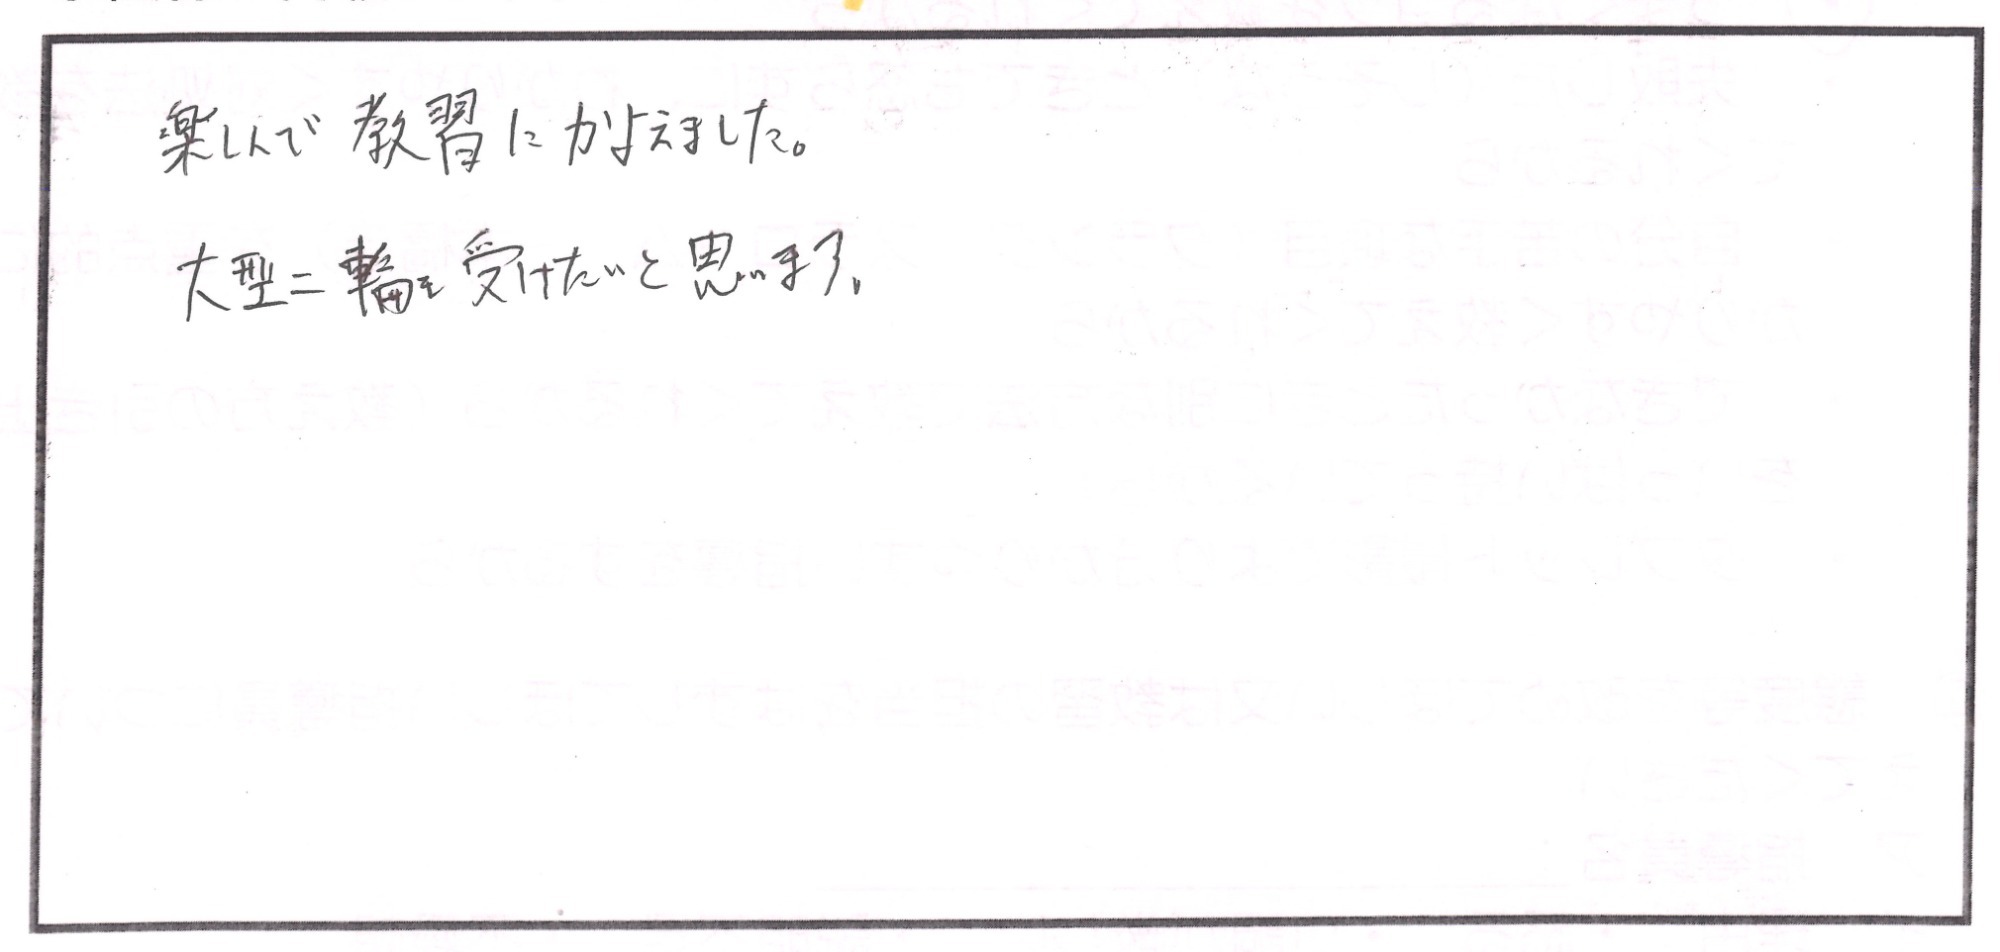 楽しんで教習にかよえました。
大型二輪を受けたいと思います。